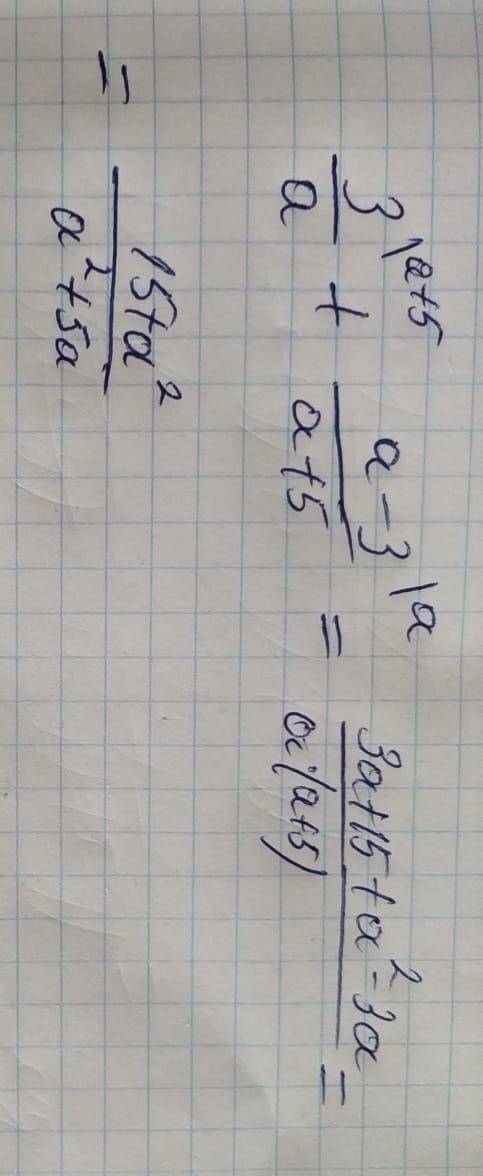 3\a+5/a + a-3\a/a+5 = 3a+15+a²-3a/a·(a+5) =
= 15+a²/a²+5a